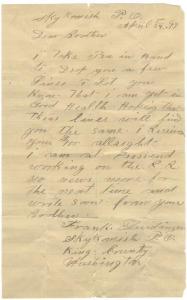 Skykomish P.O.
April 29, 97
Dear Brother
I Take Pen in Hand
To Drop you a few
Lines to Let you
Know That I am yet in
Good Health Hopeing that
These lines will find
you the same I Received
your
I am at Present
working on the R.R.
no more news for
the next time and
write soon from your
Brother
Frank
Skykomish P.O.
King County
Washington